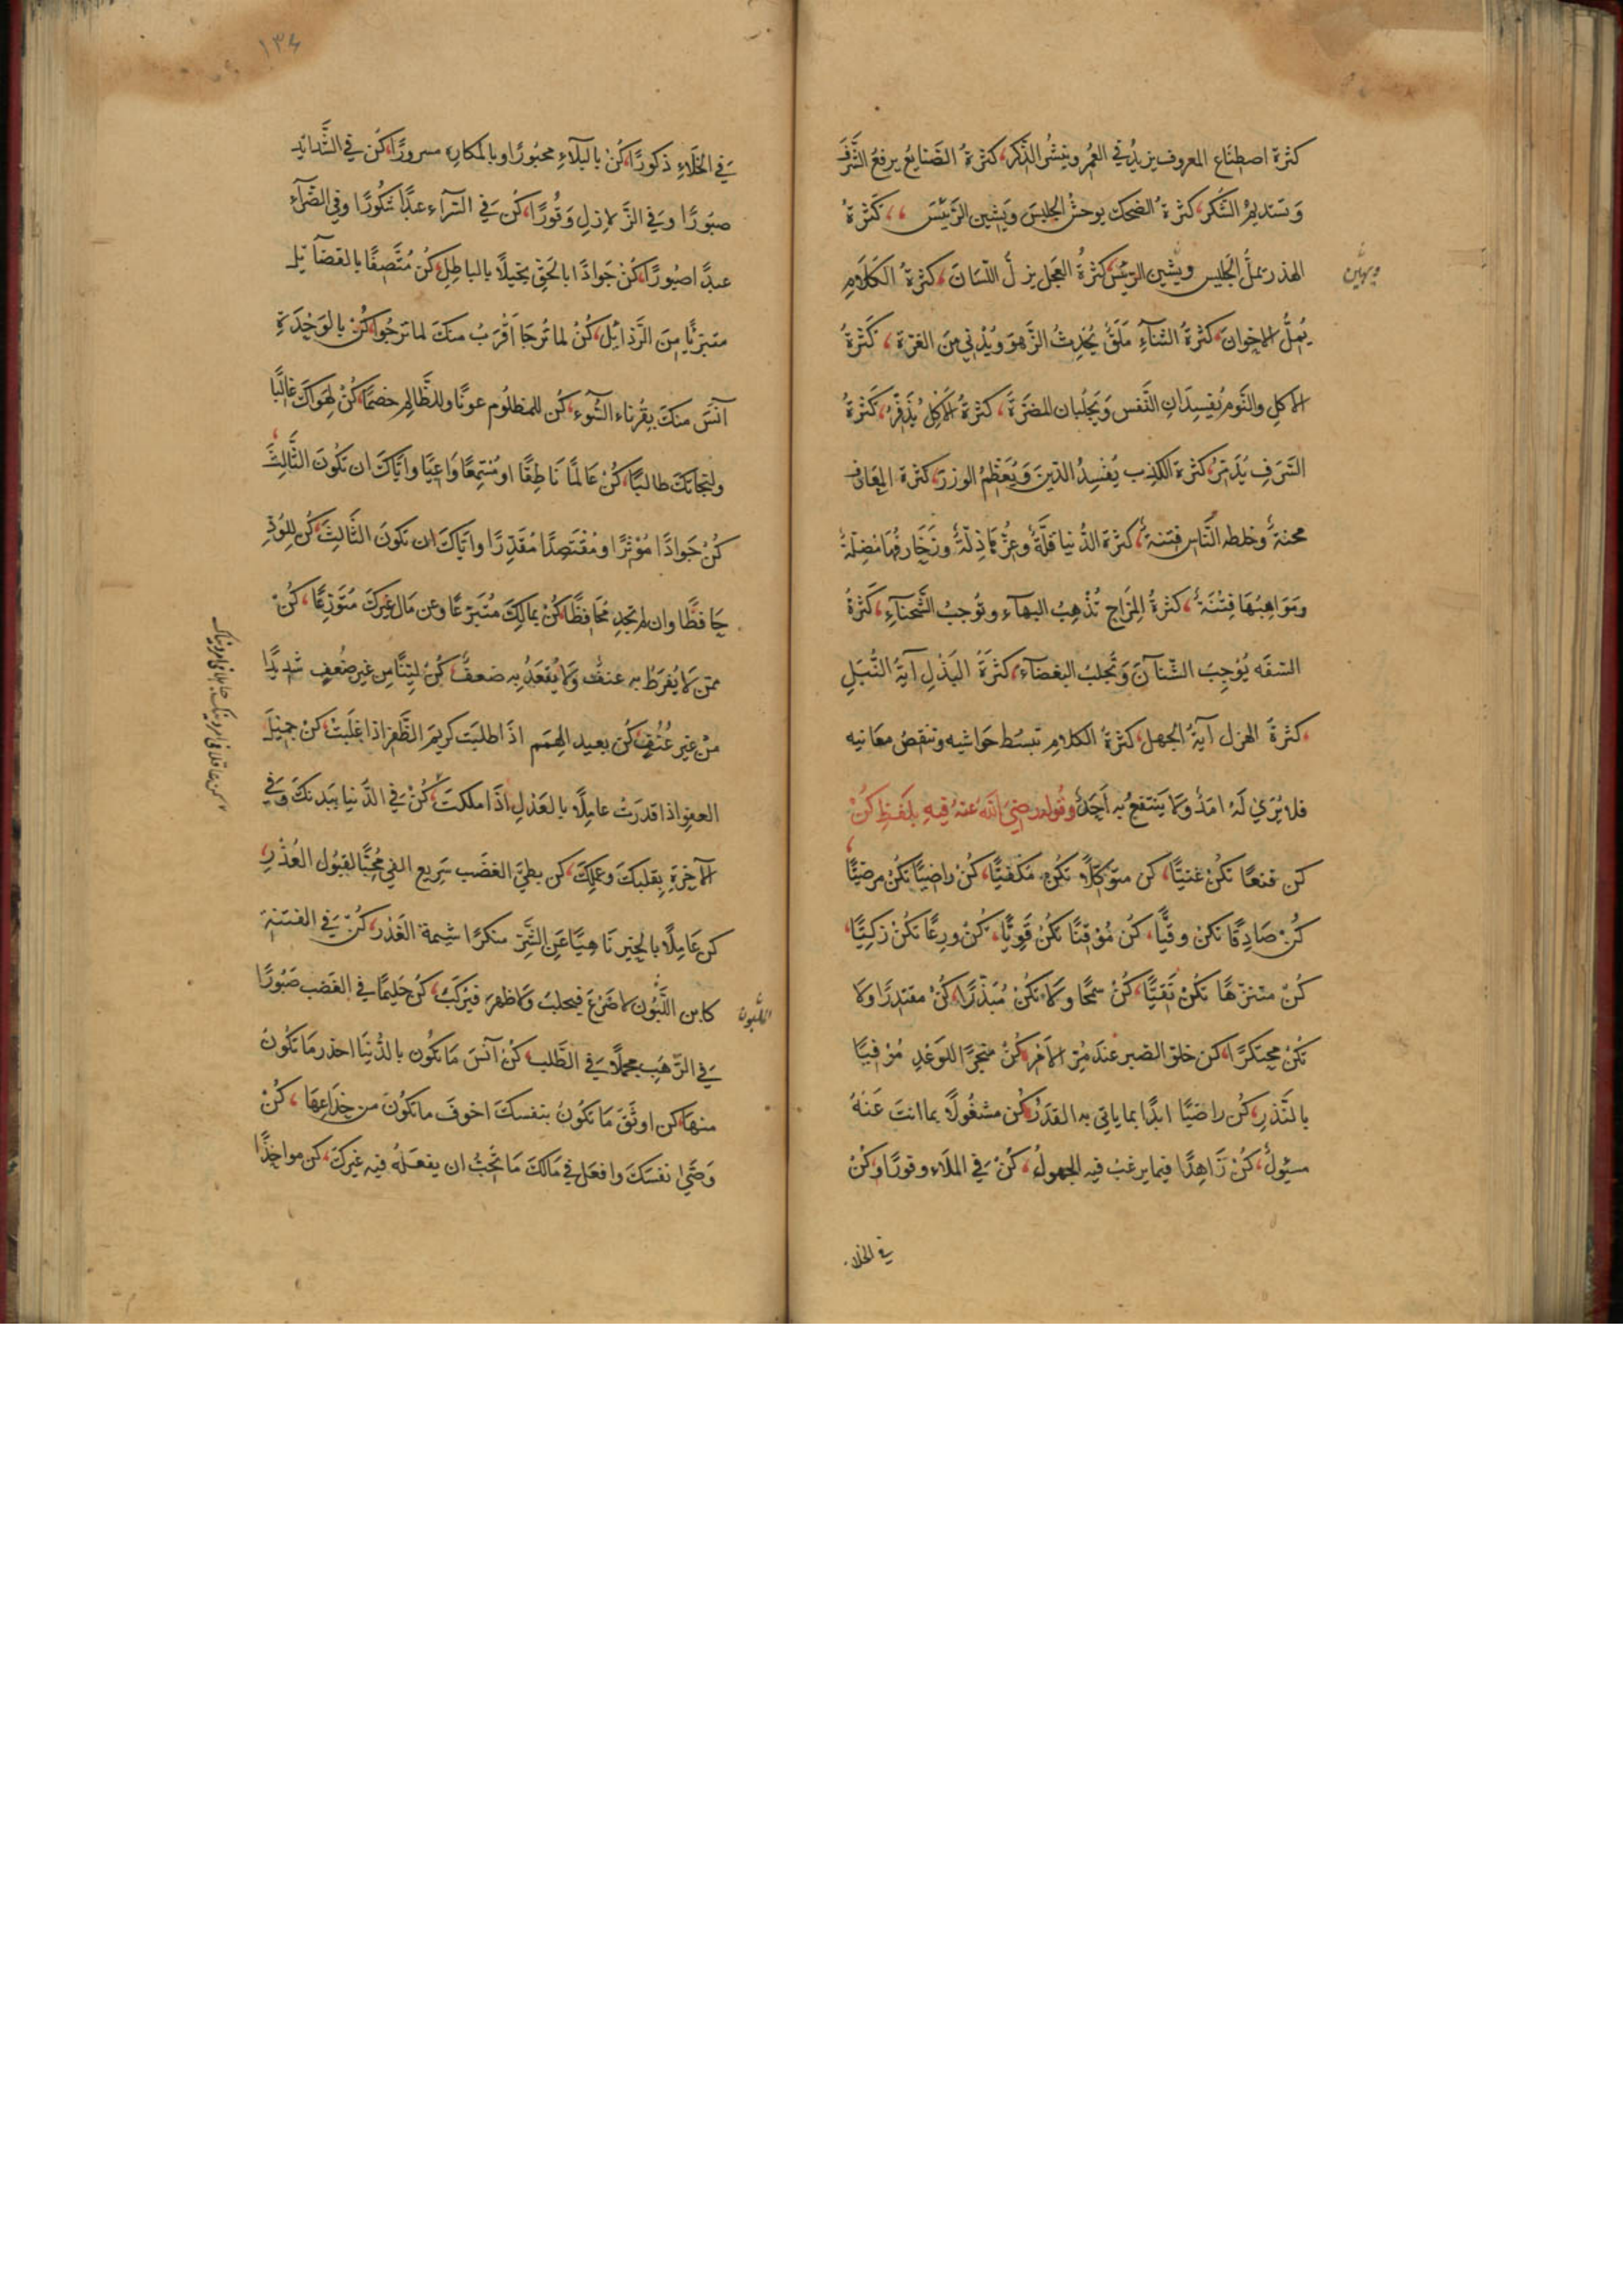 كثرة اصطناع المعروف يزيد في العمر وينشر الذكر، كثرة الصنايع يرفع الشرف
وتستديم الشكر، كثرة الضحك يوحش الجليس ويشين الرئيس،، كثرة
الهذر يمل الجليس ويشين الرئيس، كثرة العجل يزل اللسان، كثرة الكلام
ويهين
يمل الاخوان، كثرة الثناء ملق يحدث الزهو ويدني من الغرة، كثرة
الاكل والنوم يفسدان النفس ويجلبان المضرة، كثرة الاكل يذفر، كثرة
السرف يدمر، كثرة الكذب يفسد الدين ويعظم الوزر، كثرة المعارف
محنة وخلطه الناس فتنة، كثرة الدنيا قلة وعزها ذلة وزخارفها مضلة
ومواهبها فتنة، كثرة المزاح تذهب البهاء وتوجب الشحناء، كثرة
السفه يوجب الشنآن وتجلب البغضاء، كثرة البذل آية النبل
، كثرة الهزل آية الجهل، كثرة الكلام تبسط حواشيه وتنقص معانيه
فلا يرى له امد ولا ينتفع به احد، وقوله رضي الله عنه فيه بلفظ كن
كن قنعا تكن غنيا، كن متوكلا تكن مكفيا، كن راضيا تكن مرضيا
كن صادقا تكن وفيا، كن موقنا تكن قويا، كن ورعا تكن زكيا،
كن متنزها تكن تقيا، كن سمحا ولا تكن مبذرا، كن مقتدرا ولا
تكن محتكرا، كن خلق الصبر عند مر الامر، كن منجزا للوعد موفيا
بالنذر، كن راضيا ابدا بما ياتي به القدر، كن مشغولا بما انت عنه
مسئول، كن زاهدا فيما يرغب فيه الجهول، كن في الملاء وقورا وكن
في الخلاء
١٣٤
في الخلاء ذكورا، كن بالبلاء محبورا وبالمكاره مسرورا، كن في الشدايد
صبورا وفي الزلازل وقورا، كن في السراء عبدا شكورا وفي الضراء
عبدا صبورا، كن جوادا بالحق بخيلا بالباطل، كن متصفا بالفضائل
متبريا من الرذائل، كن لما ترجا اقرب منك لما ترجوا، كن بالوحدة
آنس منك بقرناء السوء، كن للمظلوم عونا وللظالم خصما، كن لهواك غالبا
ولنجاتك طالبا، كن عالما ناطقا او مستمعا واعيا واياك ان تكون الثالث،
كن جوادا موثرا او مقتصدا مقدرا واياك ان تكون الثالث، كن للود
حافظا وان لم تجد محافظا، كن بمالك متبرعا وعن مال غيرك متورعا، كن
ممن لا يفرط به عنف ولا يقعد به ضعف، كن لينا من غير ضعف شديدا
من غير عنف، كن بعيد الهمم اذا طلبت كريم الظفر اذا غلبت، كن جميل
العفو اذا قدرت عاملا بالعدل اذا ملكت، كن في الدنيا ببدنك وفي
الآخرة بقلبك وعملك، كن بطئ الغضب سريع الفئ محبا لقبول العذر،
كن عاملا بالخير ناهيا عن الشر منكرا شيمة الغدر، كن في الفتنة
كابن اللبون لا ضرع فيحلب ولا ظهر فيركب، كن حليما في الغضب صبورا
اللبون
في الرهب مجملا في الطلب، كن آنس ما تكون بالدنيا احذر ما تكون
منها، كن اوثق ما تكون بنفسك اخوف ما تكون من خداعها، كن
وصي نفسك وافعل في مالك ما تحب ان يفعله فيه غيرك، كن مواخذا